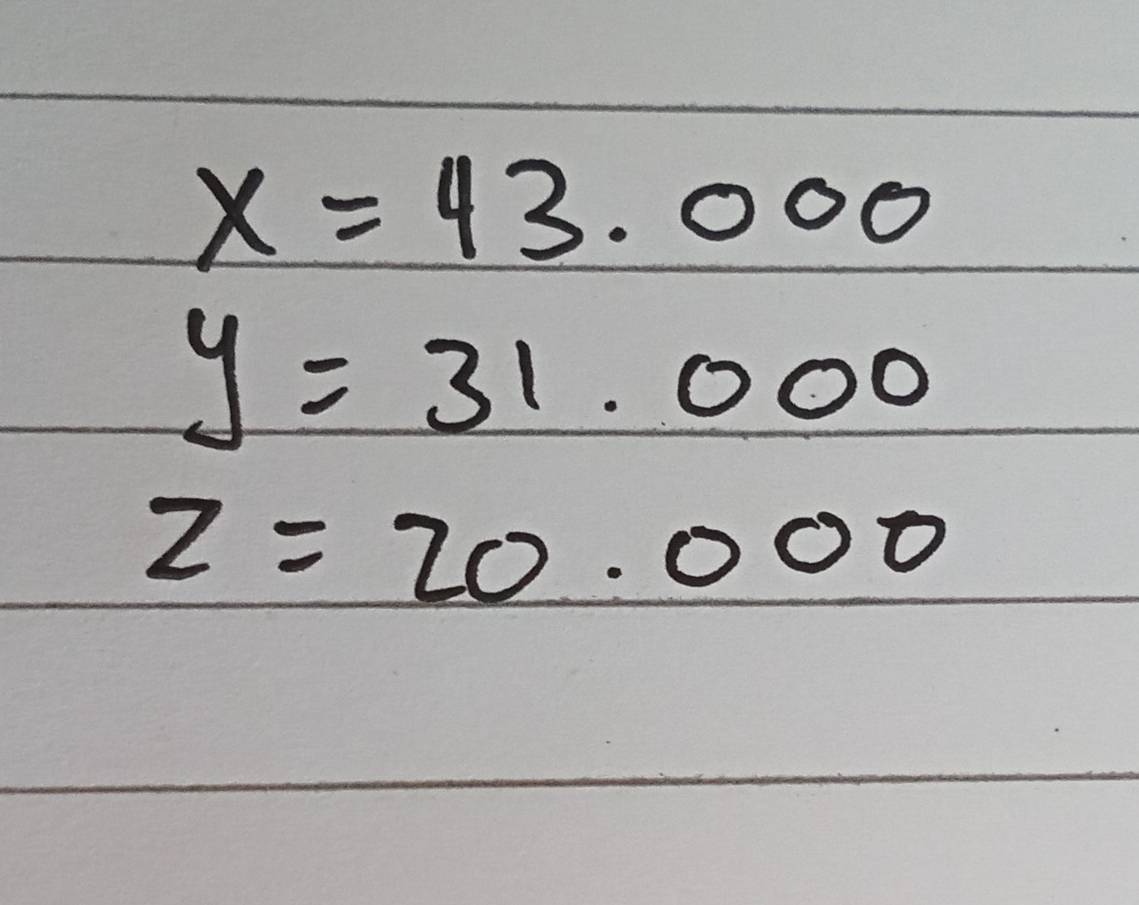 x = 43.000
y = 31.000
z = 20.000